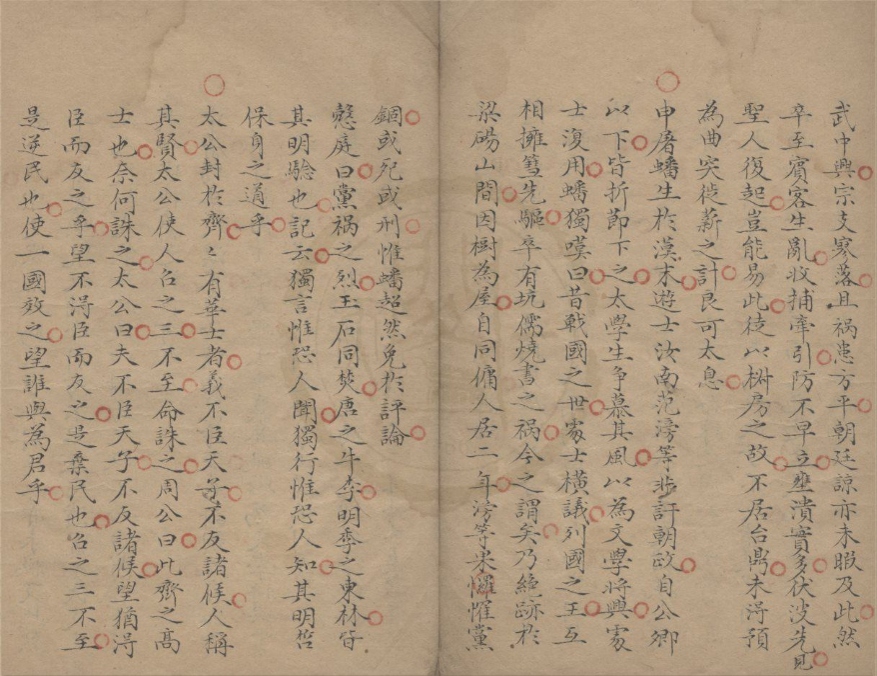 武中興宗支寥落且禍患方平朝廷諒亦未暇及此然
卒至賓客生亂收捕牽引防不早立壅潰實多伏波先見
聖人復起豈能易此徒以椒房之故不居台鼎未淂預
為曲突徙薪之計良可太息
申屠蟠生於漢末遊士汝南范滂等非訐朝政自公卿
以下皆折節下之太學生争慕其風以為文學將興處
士復用蟠獨嘆曰昔戰國之世處士橫議列國之王互
相擁篲先驅卒有坑儒燒書之禍今之謂矣乃絶跡於
梁碭山間因樹為屋自同傭人居二年滂等果懼罹黨
錮或死或刑惟蟠超然免於評論
愸庭曰黨禍之烈玉石同焚唐之牛李明季之東林皆
其明驗也記云獨言惟恐人聞獨行惟恐人知其明哲
保身之道乎
太公封於齊〻有華士者義不臣天子不友諸候人稱
其賢太公使人召之三不至命誅之周公曰此齊之高
士也奈何誅之太公曰夫不臣天子不友諸候望猶淂
臣而友之乎望不淂臣而友之是棄民也召之三不至
是逆民也使一國效之望誰與為君乎